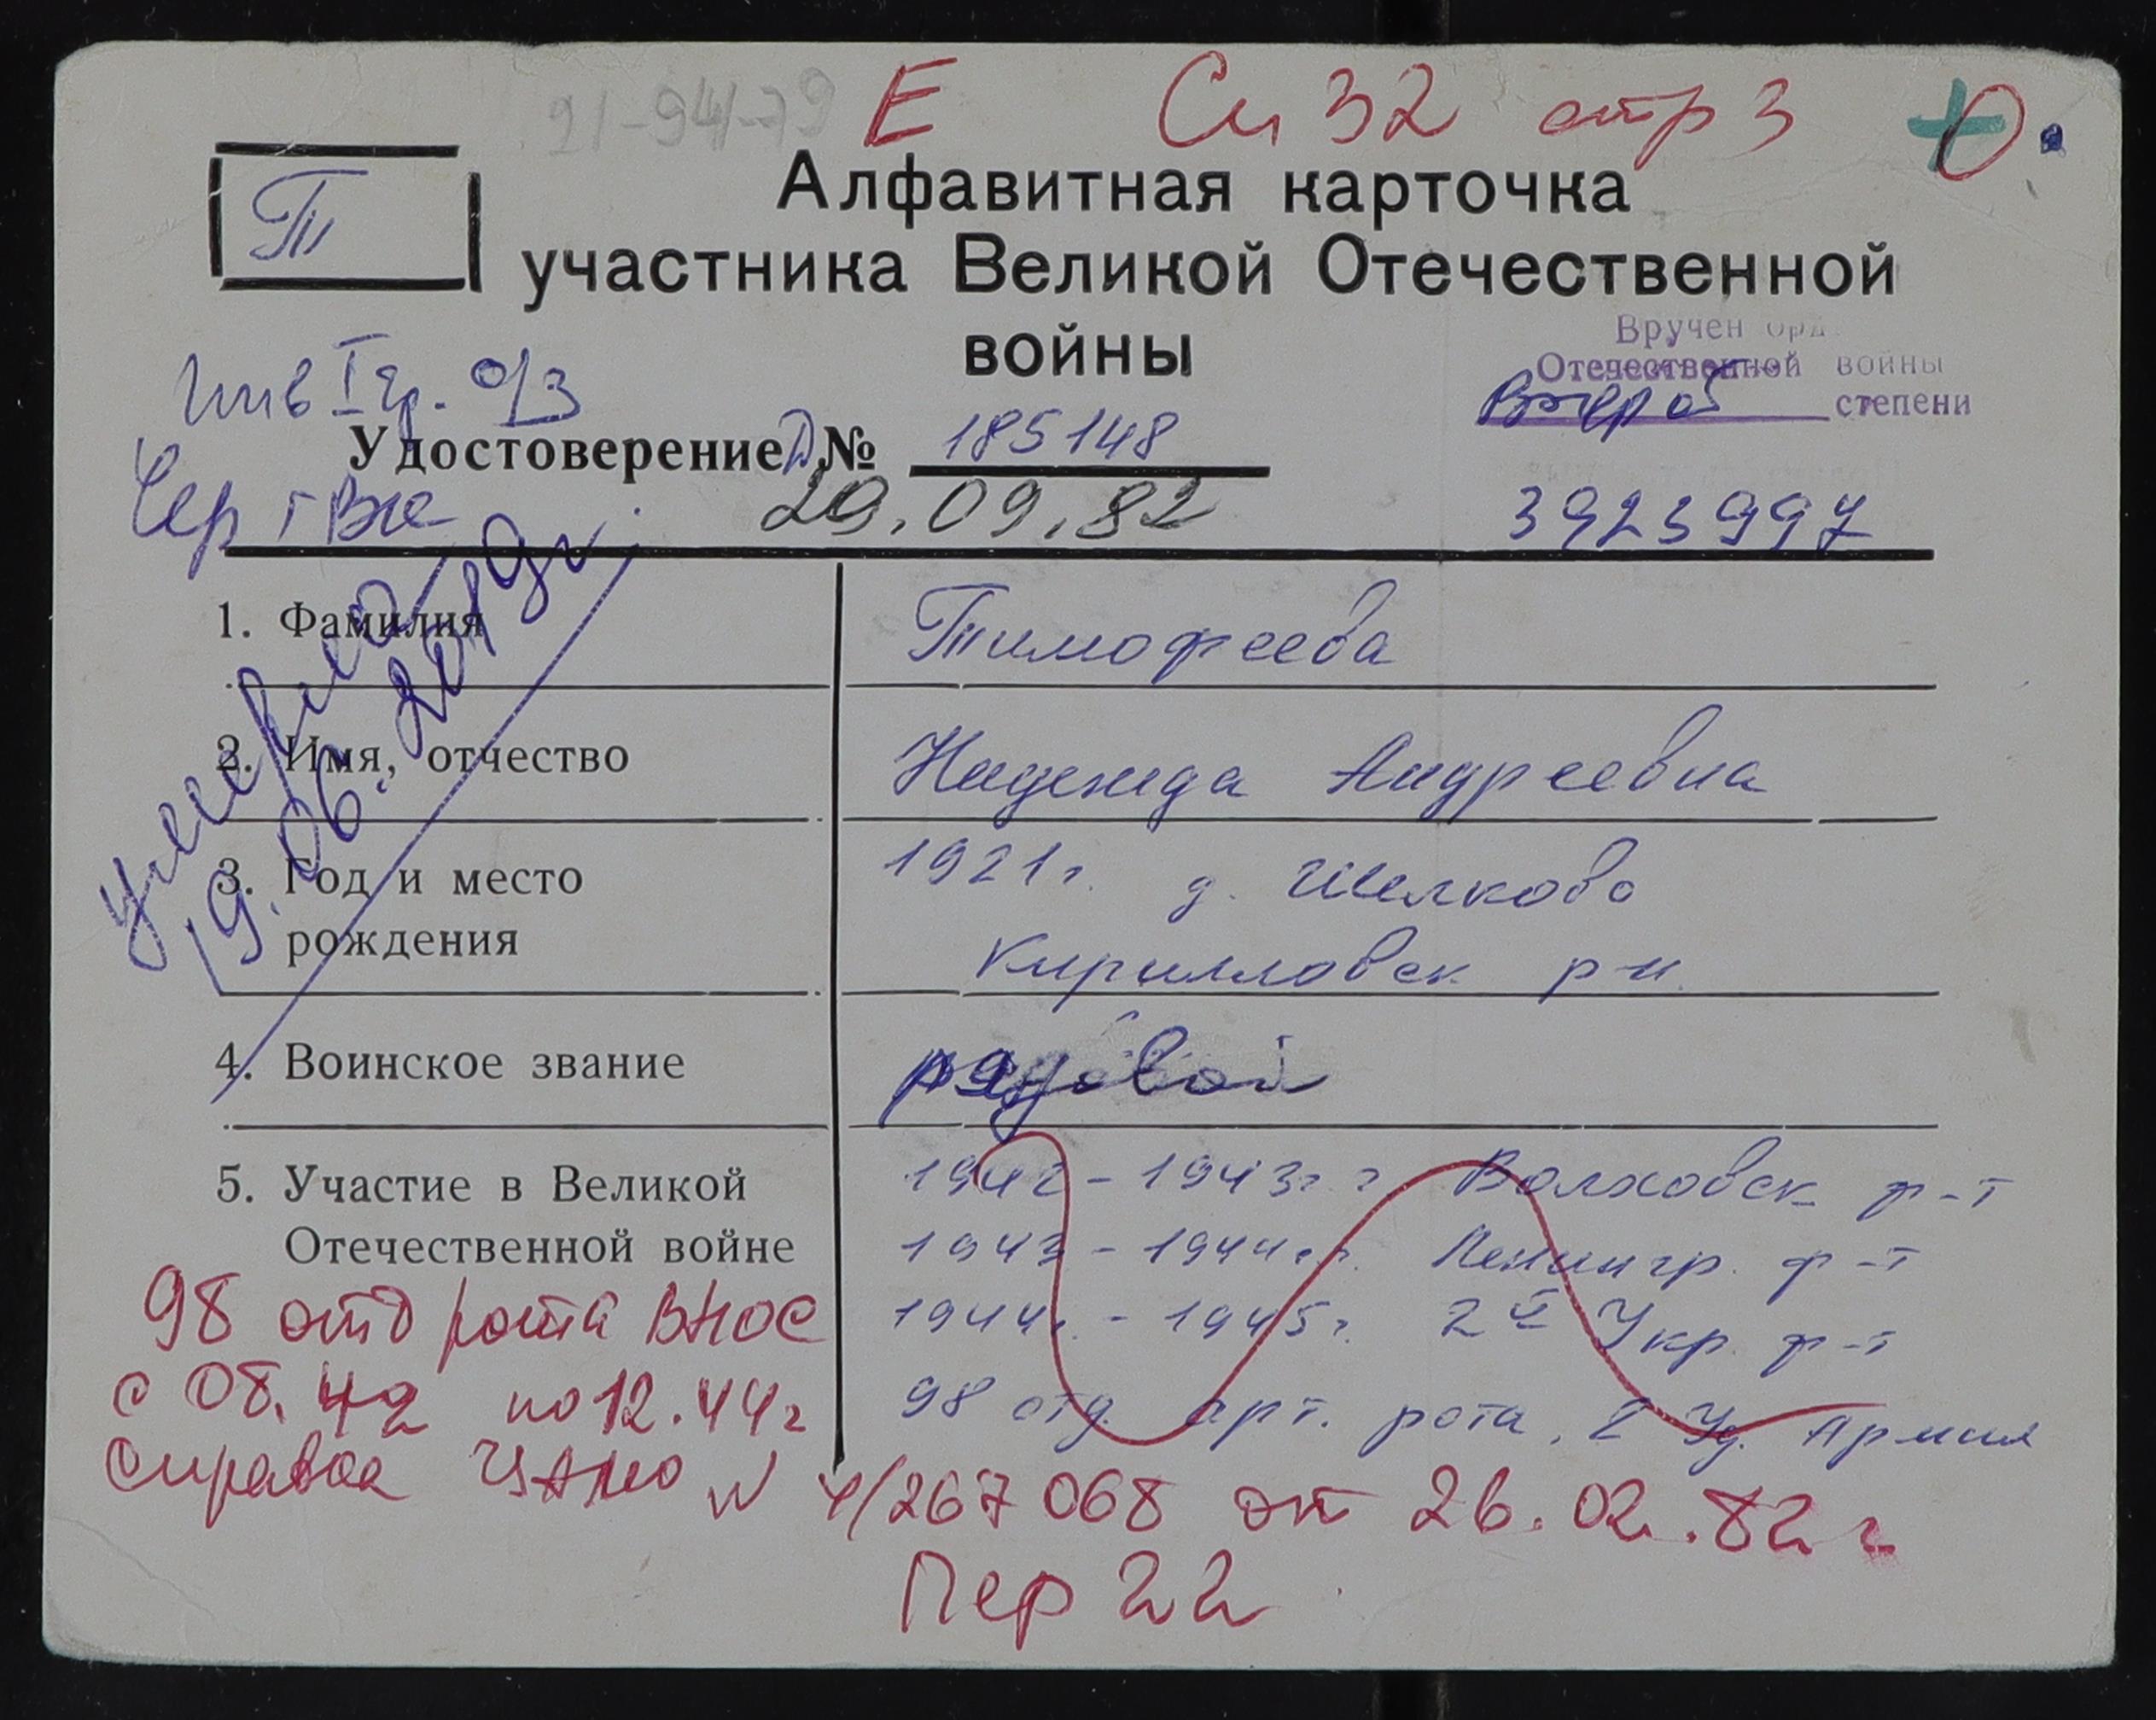 91-94-79 Е Сп 32 стр 3 +
Т
Алфавитная карточка
участника Великой Отечественной
войны
Вручен орд.
Отечественной войны
Второй степени
Инв I гр. о/з
Удостоверение Д № 185148
Чер г Вже
29.09.82
3923997
умерла
19.06.2019г.
1. Фамилия
Тимофеева
2. Имя, отчество
Надежда Андреевна
3. Год и место
рождения
1921г. д. Шелково
Кирилловск р-н
4. Воинское звание
рядовой
5. Участие в Великой
Отечественной войне
1942-1943г г Волховск ф-т
1943-1944г.г. Ленингр. ф-т
1944г.-1945г. 2й Укр. ф-т
98 отд. арт. рота, 2 Уд. Армия
98 отд рота ВНОС
с 08.42 по 12.44г
Справка ЦАМО N 4/267068 от 26.02.82г
Пер 22